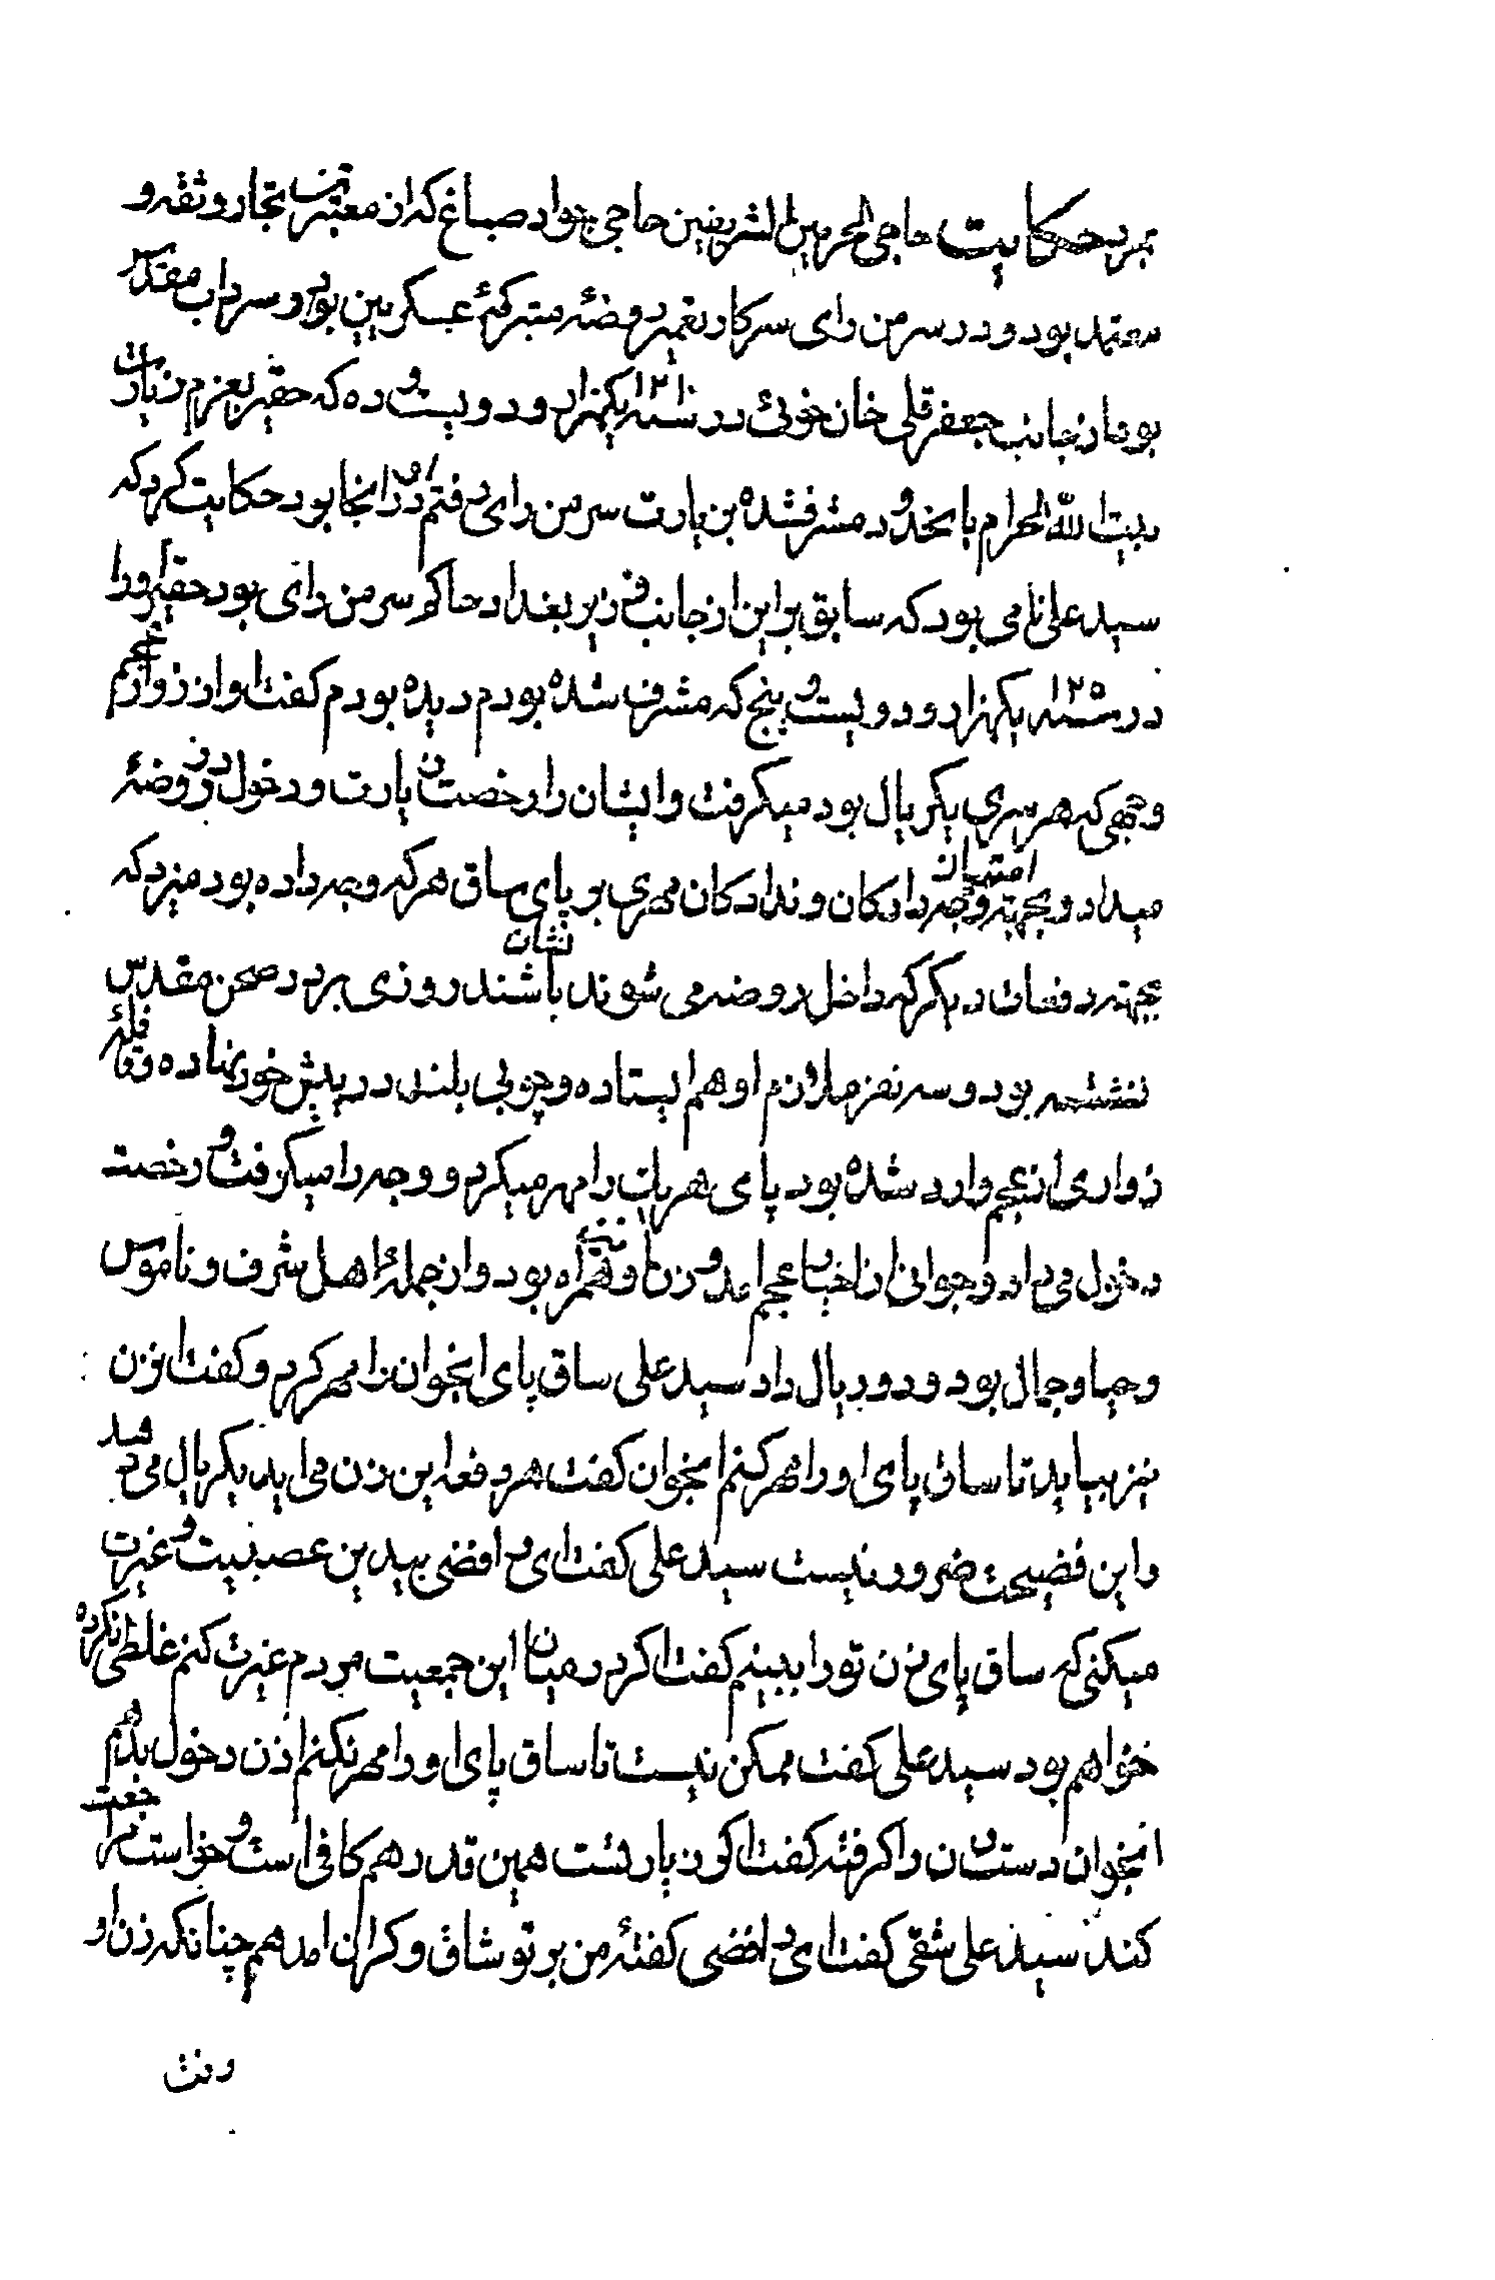 برد حکایت حاجی الحرمین الشریفین حاجی جواد صباغ که از معتبرین تجار و ثقه و
معتمد بود و در سر من رای سرکار تعمیر روضهٔ متبرکهٔ عسکریین بود و سرداب مقدس
بود از جانب جعفر قلی خان خوئی در سنه ۱۲۱۰ یکهزار و دویست و ده که حقیر بعزم زیارت
بیت الله الحرام بانحدود مشرف شده بزیارت سر من رای رفتم او در انجا بود حکایت کرد که
سید علی نامی بود که سابق بر این از جانب وزیر بغداد حاکم سر من رای بود حقیر او را
در سنه ۱۲۰۵ یکهزار و دویست و پنج که مشرف شده بودم دیده بودم گفت او از زوار عجم
وجهی که هر سری یکریال بود میگرفت و ایشان را رخصت زیارت و دخول در روضهٔ
میداد و بجهة امتیاز وجه دادکان و ندادکان مهری بر پای ساق هر که وجه داده بود میزد که
بجهته دفعات دیکر که داخل روضه می شوند نشان باشند روزی بر در صحن مقدس
نشسته بود و سه نفر ملازم او هم ایستاده و چوبی بلند در پیش خود نهاده و قافلهٔ
زواری از عجم وارد شده بود پای هر یک را مهر میکرد و وجه را میگرفت و رخصت
دخول می داد و جوانی از اخیار عجم امد و زن او همراه بود و از جملهٔ اهل شرف و ناموس
و حیا و جمال بود و دو ریال داد سید علی ساق پای انجوان را مهر کرد و گفت انزن
نیز بیاید تا ساق پای او را مهر کنم انجوان گفت هر دفعه این زن می اید یکریال می دهد
و این فضیحت ضرور نیست سید علی گفت ای رافضی بیدین عصبیت و غیرت
میکنی که ساق پای زن تو را ببینم گفت اگر در میان این جمعیت مردم غیرت کنم غلطی نکرده
خواهم بود سید علی گفت ممکن نیست تا ساق پای او را مهر نکنم اذن دخول بدهم
انجوان دست زن را گرفته گفت اگر زیارتست همین قدر هم کافی است و خواست مراجعت
کند سید علی شقی گفت ای رافضی گفتهٔ من بر تو شاق و گران امد هم چنانکه زن او